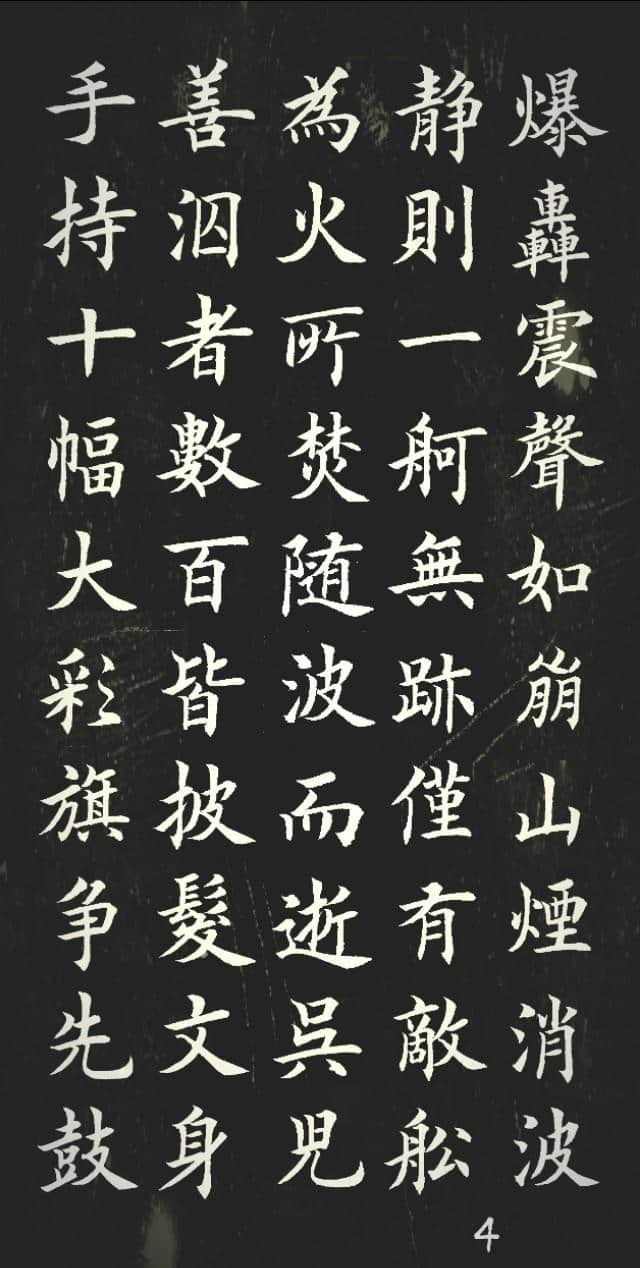 爆轟震聲如崩山煙消波
静則一舸無跡僅有敵舩
為火所焚随波而逝呉児
善泅者數百皆披髮文身
手持十幅大彩旗争先鼓
4